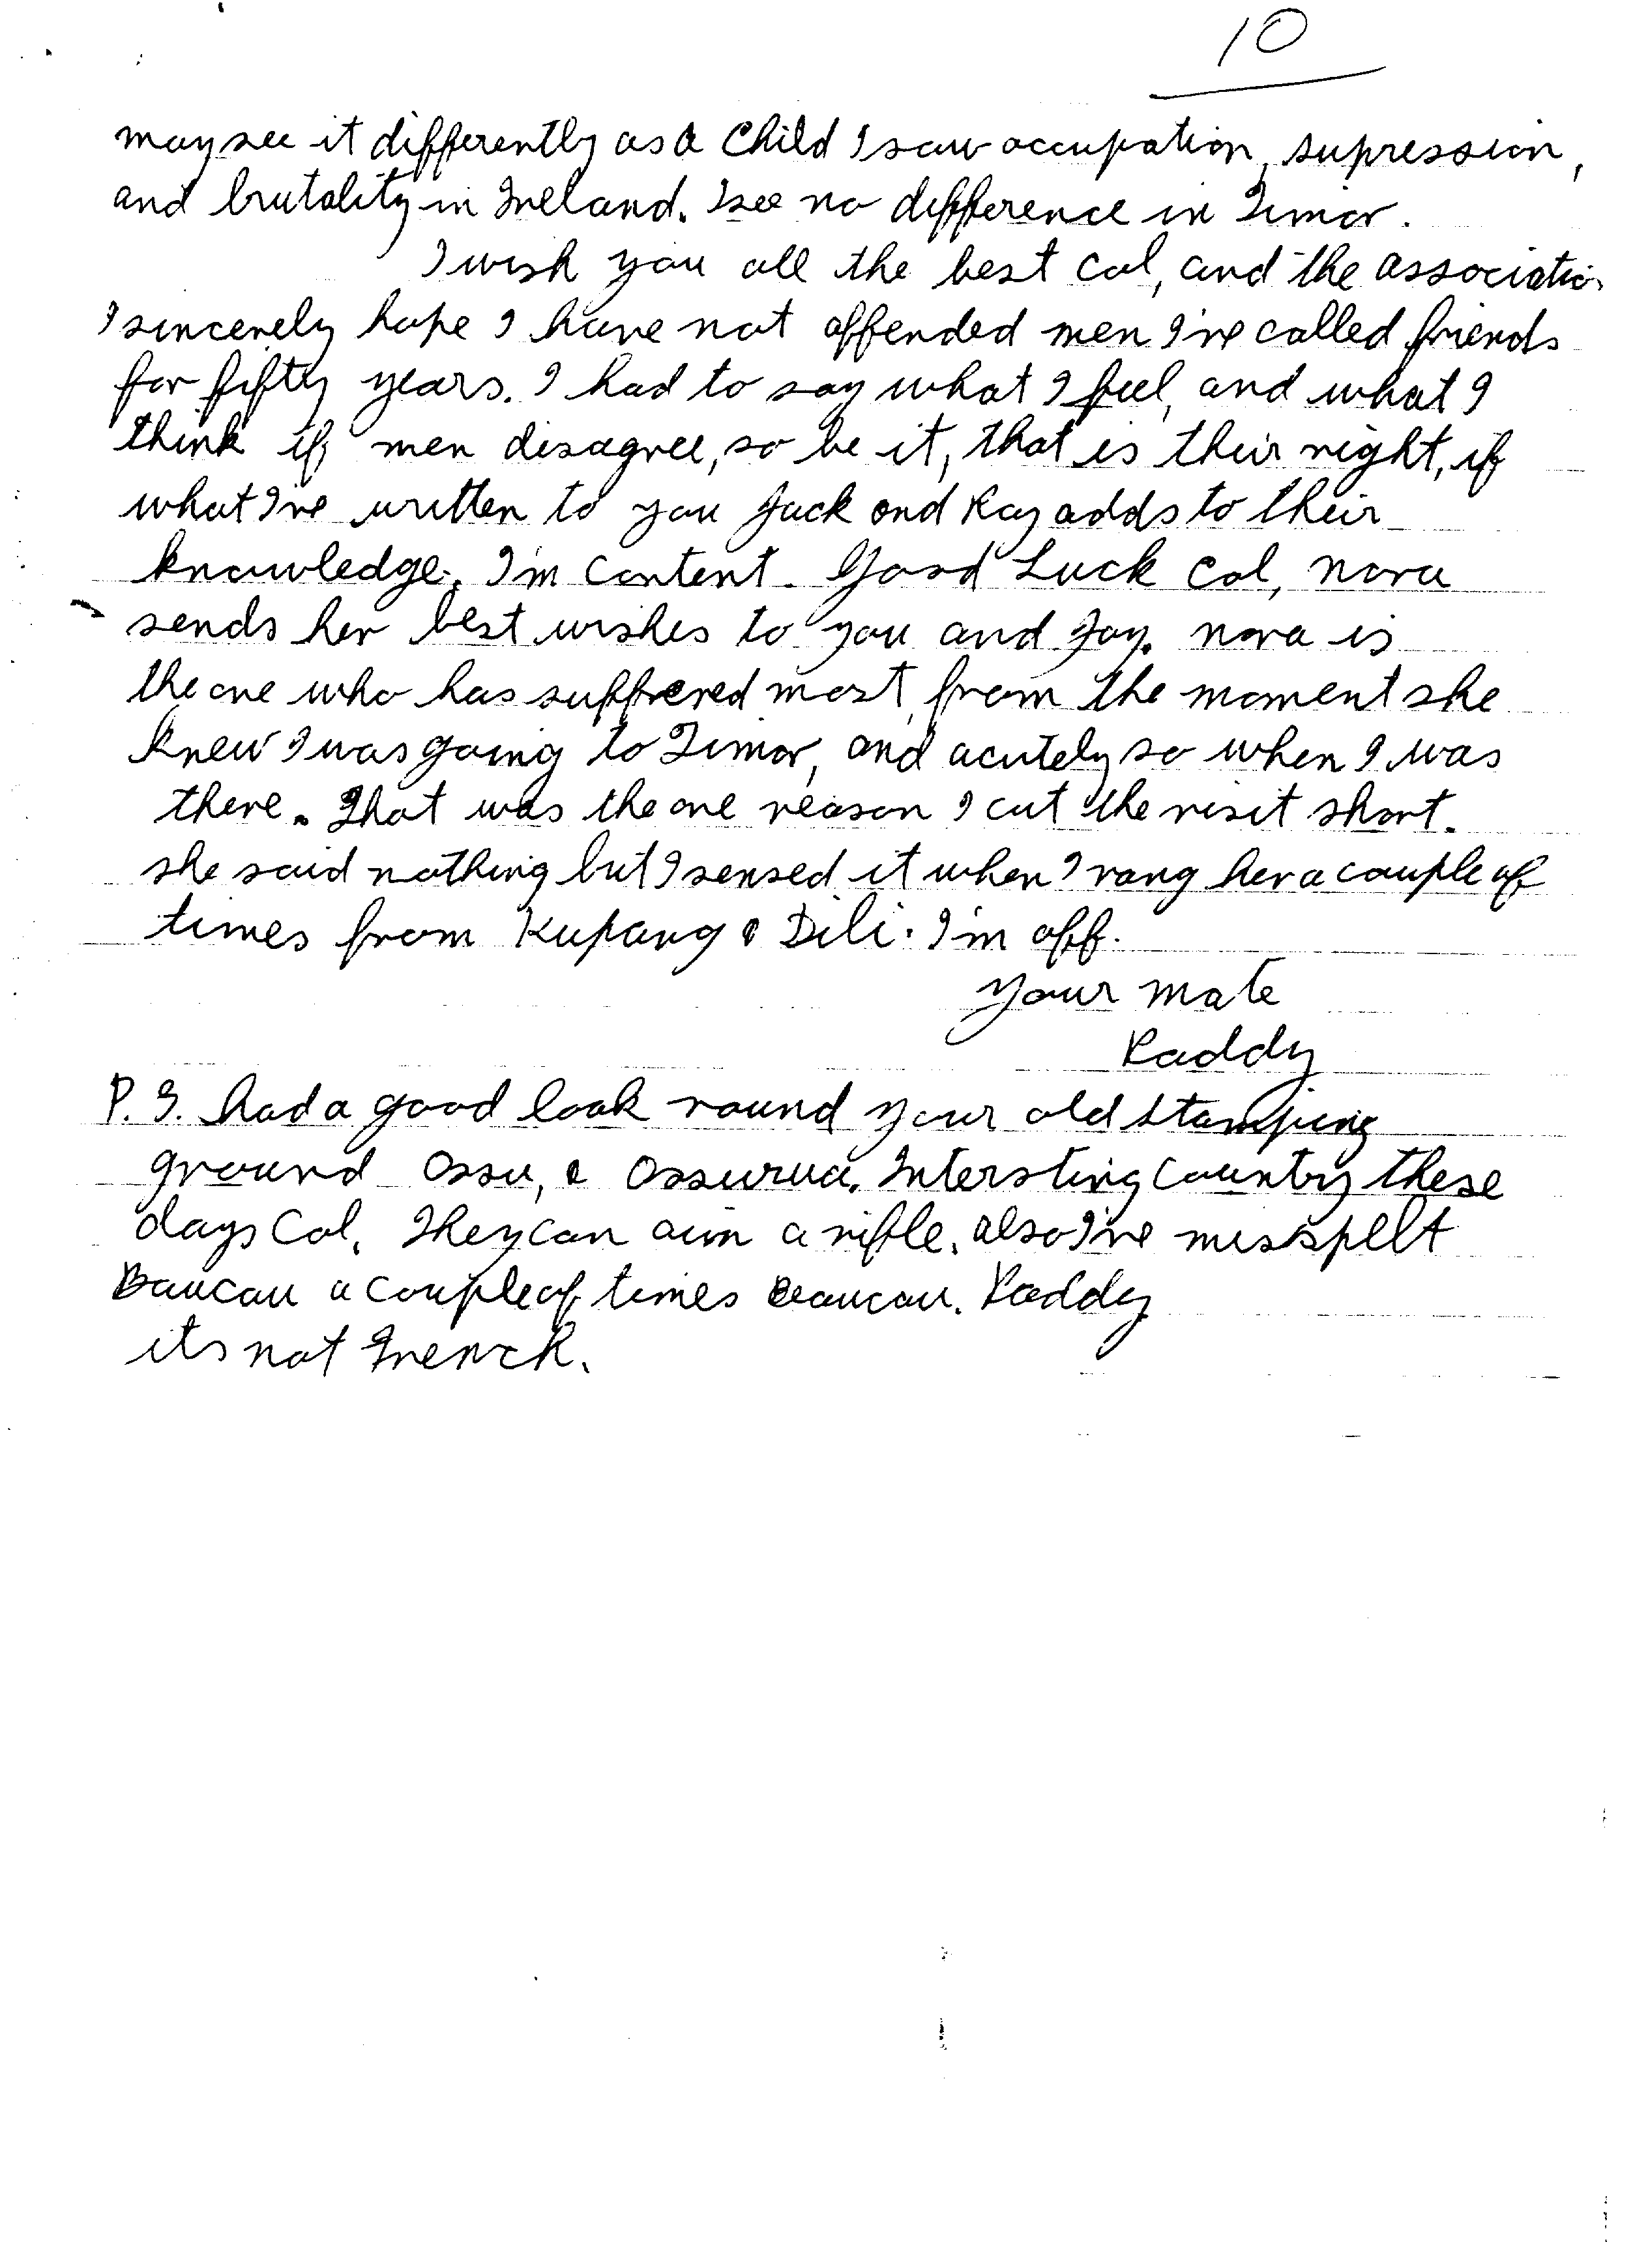 10
may see it differently as a Child I saw occupation, supression,
and brutality in Ireland. I see no difference in Timor.
I wish you all the best Col, and the association
I sincerely hope I have not offended men I've called friends
for fifty years. I had to say what I feel, and what I
think if men disagree, so be it, that is their right, if
what I've written to you Jack and Ray adds to their
knowledge, I'm Content. Good Luck Col, Nora
sends her best wishes to you and Joy. Nora is
the one who has suffered most, from the moment she
knew I was going to Timor, and acutely so when I was
there. That was the one reason I cut the visit short.
she said nothing but I sensed it when I rang her a couple of
times from Kupang & Dili. I'm off.
Your Mate
Paddy
P.S. had a good look round your old stamping
ground Ossu, & Ossurua. Intersting Country these
days Col. They can aim a rifle. also I've missplelt
Baucau a couple of times Beaucau. Paddy
its not French.